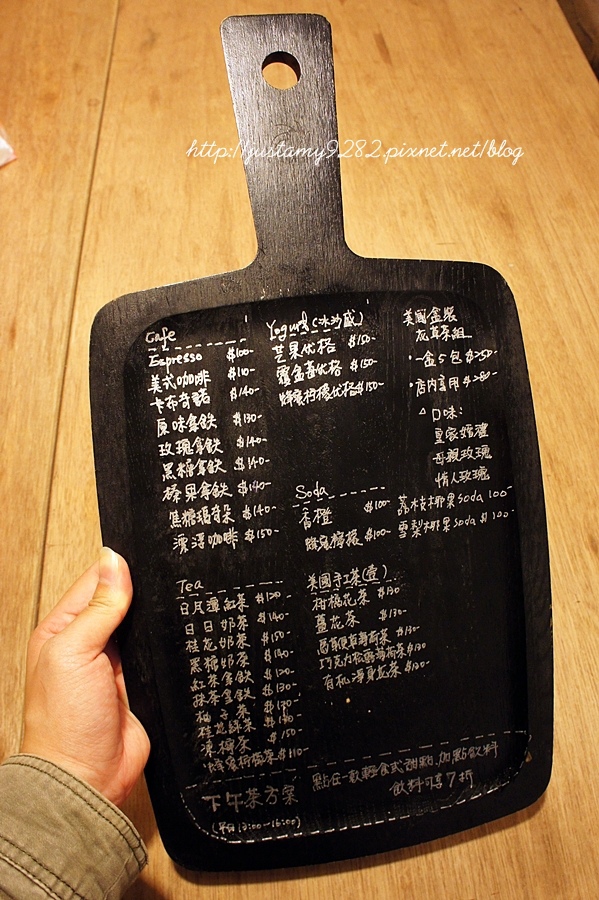 http://justamy9282.pixnet.net/blog
Cafe
Espresso $100-
美式咖啡 $110-
卡布奇諾 $140-
原味拿鐵 $130-
玫瑰拿鐵 $140-
黑糖拿鐵 $140-
榛果拿鐵 $140-
焦糖瑪奇朵 $140-
漂浮咖啡 $150-
Yogurt (冰沙感)
芒果优格 $150-
覆盆莓优格 $150-
蜂蜜柠檬优格 $150-
美國盒裝
花草茶組
·一盒5包 $250-
·店内享用 $280-
△口味:
皇家婚禮
母親玫瑰
情人玫瑰
Soda
香橙 $100-
蜂蜜檸檬 $100-
荔枝椰果Soda 100-
雪梨椰果Soda $100-
Tea
日月潭紅茶 $120-
日日奶茶 $140-
桂花奶茶 $150-
黑糖奶茶 $140-
紅茶拿鐵 $120-
抹茶拿鐵 $130-
柚子茶 $130-
桂花綠茶 $130-
凍檸茶 $150-
蜂蜜柠檬茶 $110-
美國手工茶(壺)
柑橘花茶 $130
薑花茶 $130-
薄荷茶 $130-
巧克力松露薄荷茶 $130
有机 花茶 $120-
下午茶方案
(平日 13:00~16:00)
點任一款輕食或甜點,加點飲料
飲料可享7折